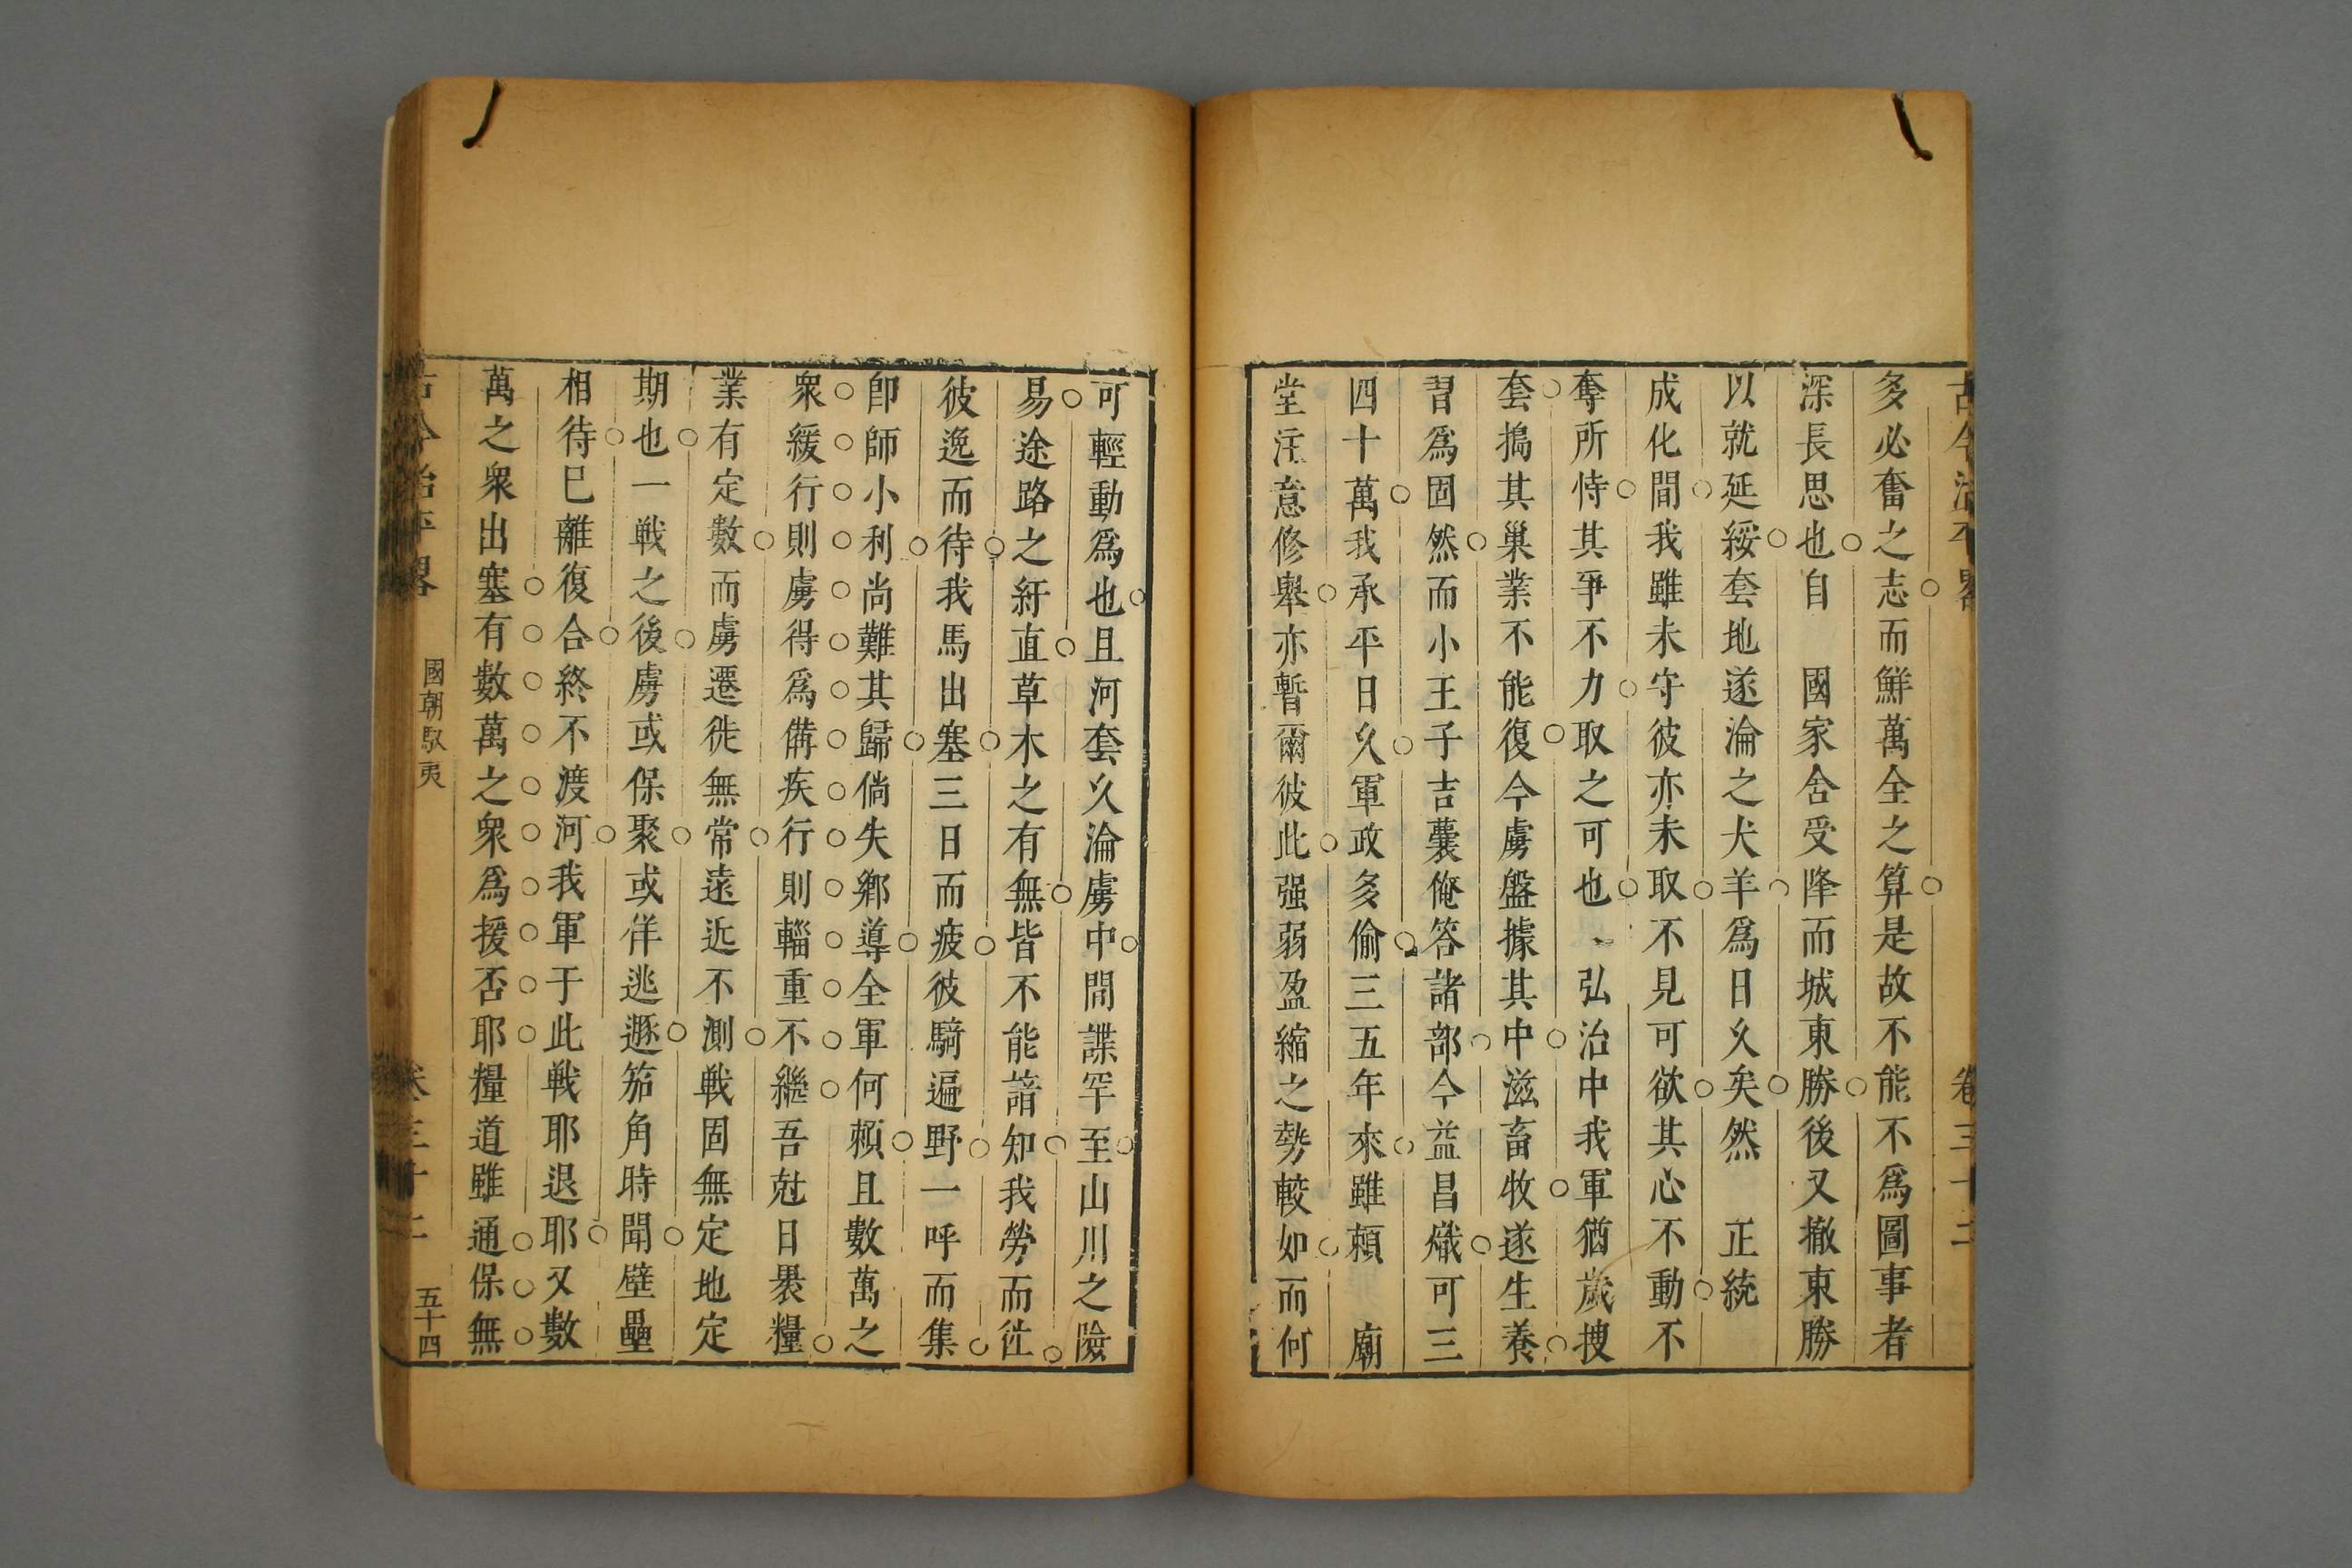 古今治平畧 卷三十二
多必奮之志而鮮萬全之算是故不能不爲圖事者
深長思也自 國家舍受降而城東勝後又撤東勝
以就延綏套地遂淪之犬羊爲日久矣然 正統
成化間我雖未守彼亦未取不見可欲其心不動不
奪所恃其爭不力取之可也 弘治中我軍猶歲搜
套搗其巢業不能復今虜盤據其中滋畜牧遂生養
習爲固然而小王子吉囊俺答諸部今益昌熾可三
四十萬我承平日久軍政多偷三五年來雖頼 廟
堂注意修舉亦暫爾彼此强弱盈縮之勢較如而何
可輕動爲也且河套久淪虜中間諜罕至山川之險
易途路之紆直草木之有無皆不能諳知我勞而徃
彼逸而待我馬出塞三日而疲彼騎遍野一呼而集
卽師小利尚難其歸倘失鄕導全軍何頼且數萬之
衆緩行則虜得爲備疾行則輜重不繼吾尅日褁糧
業有定數而虜遷徙無常遠近不測戦固無定地定
期也一戦之後虜或保聚或佯逃遯笳角時聞壁壘
相待巳離復合終不渡河我軍于此戦耶退耶又數
萬之衆出塞有數萬之衆爲援否耶糧道雖通保無
古今治平畧 國朝馭夷 卷三十二 五十四